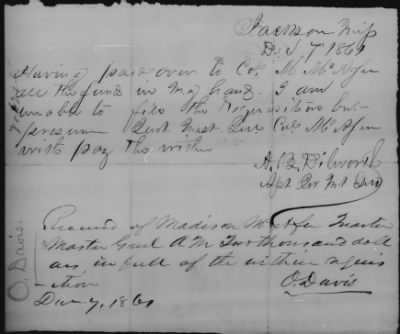 Jackson Miss
Dec 7 1861
Having paid over to Col M McAfee
all the funds in my hand. I am
unable to fill the requisition but
presume Qust Mast. Col McAfee
will pay the
A. B. Dilworth
Apt Qr Mst Genl
Received of Madison McAfee Quarter
Master Genl A M Two thousand doll
ars in full of the within requis
ition
O Davis
Dec 7, 1861
O. Davis.